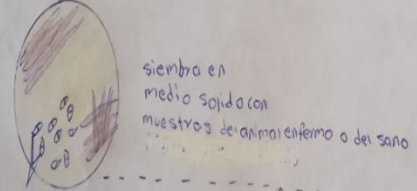 siembra en
medio solido con
muestras de animal enfermo o del sano